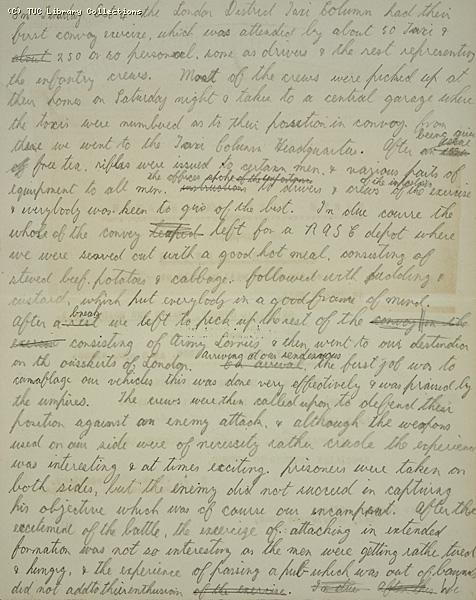 (C) TUC Library Collections
the London District Taxi Column had their
first convoy exercise, which was attended by about 50 Taxi's &
about 250 or 60 personal, some as drivers & the rest representing
the infantry crews. Most of the crews were picked up at
their homes on Saturday night & taken to a central garage where
the taxis were numbered as to their position in convoy, from
there we went to the Taxi Column Headquarters. After being given
of free tea, rifles were issued to certain men, & various parts of
equipment to all men. the officer spoke
instructions to drivers & crews of the exercise
& everybody was keen to give of the best. In due course the
whole of the convoy left for a R A S C depot where
we were served out with a good hot meal, consisting of
stewed beef, potatoes & cabbage, followed with pudding &
custard, which put everybody in a good frame of mind.
After a we left to pick up the rest of the convoy
consisting of Army Lorries, & then went to our destination
on the outskirts of London. Arriving at our rendezvous
on arrival, the first job was to
camoflage our vehicles this was done very effectively & was praised by
the umpires. The crews were then called upon to defend their
position against an enemy attack, & although the weapons
used on our side were of necessity rather crude the experience
was interesting & at times exciting. prisoners were taken on
both sides, but the enemy did not succeed in capturing
his objective which was of course our incampment. After the
excitement of the battle, the exercise of attacking in extended
formation was not so interesting as the men were getting rather tired
& hungry, & the experience of passing a pub which was out of bounds
did not add to their enthusism of the exercise. We